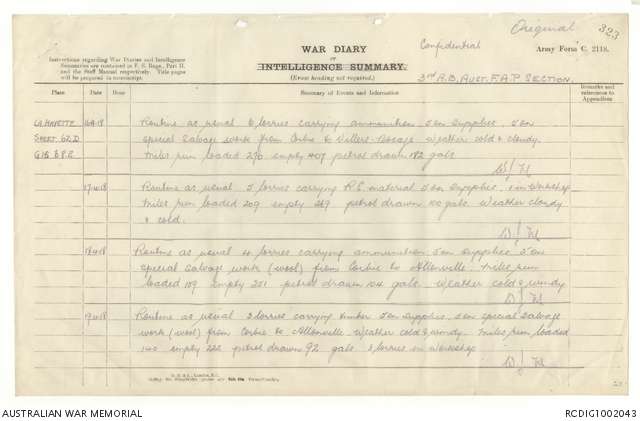 Original
323
WAR DIARY
or
INTELLIGENCE SUMMARY.
(Erase heading not required.)
Confidential
Army Form C. 2118.
Instructions regarding War Diaries and Intelligence
Summaries are contained in F. S. Regs., Part II.
and the Staff Manual respectively. Title pages
will be prepared in manuscript.
3rd A.B. Aust. F.A.P. Section.
Place
Date
Hour
Summary of Events and Information
Remarks and
references to
Appendices
LAHAYETTE
Sheet 62D
16.4.18
Routine as usual 6 lorries carrying ammunition 5 on supplies 5 on
special Salvage work from Corbie to Villers-Bocage weather cold & cloudy.
Miles run loaded 270 empty 407 petrol drawn 182 gals.
17.4.18
Routine as usual 5 lorries carrying R.E. material 5 on supplies
Miles run loaded 209 empty petrol drawn 100 gals. Weather cloudy
& cold.
18.4.18
Routine as usual 4 lorries carrying ammunition 5 on supplies 5 on
special Salvage work (wool) from Corbie to Allonville. Miles run
loaded 109 empty 251 petrol drawn 104 gals. Weather cold & windy
19.4.18
Routine as usual 3 lorries carrying timber 5 on supplies 5 on special Salvage
work (wool) from Corbie to Allonville. Weather cold & windy. Miles run loaded
140 empty 222 petrol drawn 92 gals. 3 lorries in Workshop
AUSTRALIAN WAR MEMORIAL
RCDIG1002043